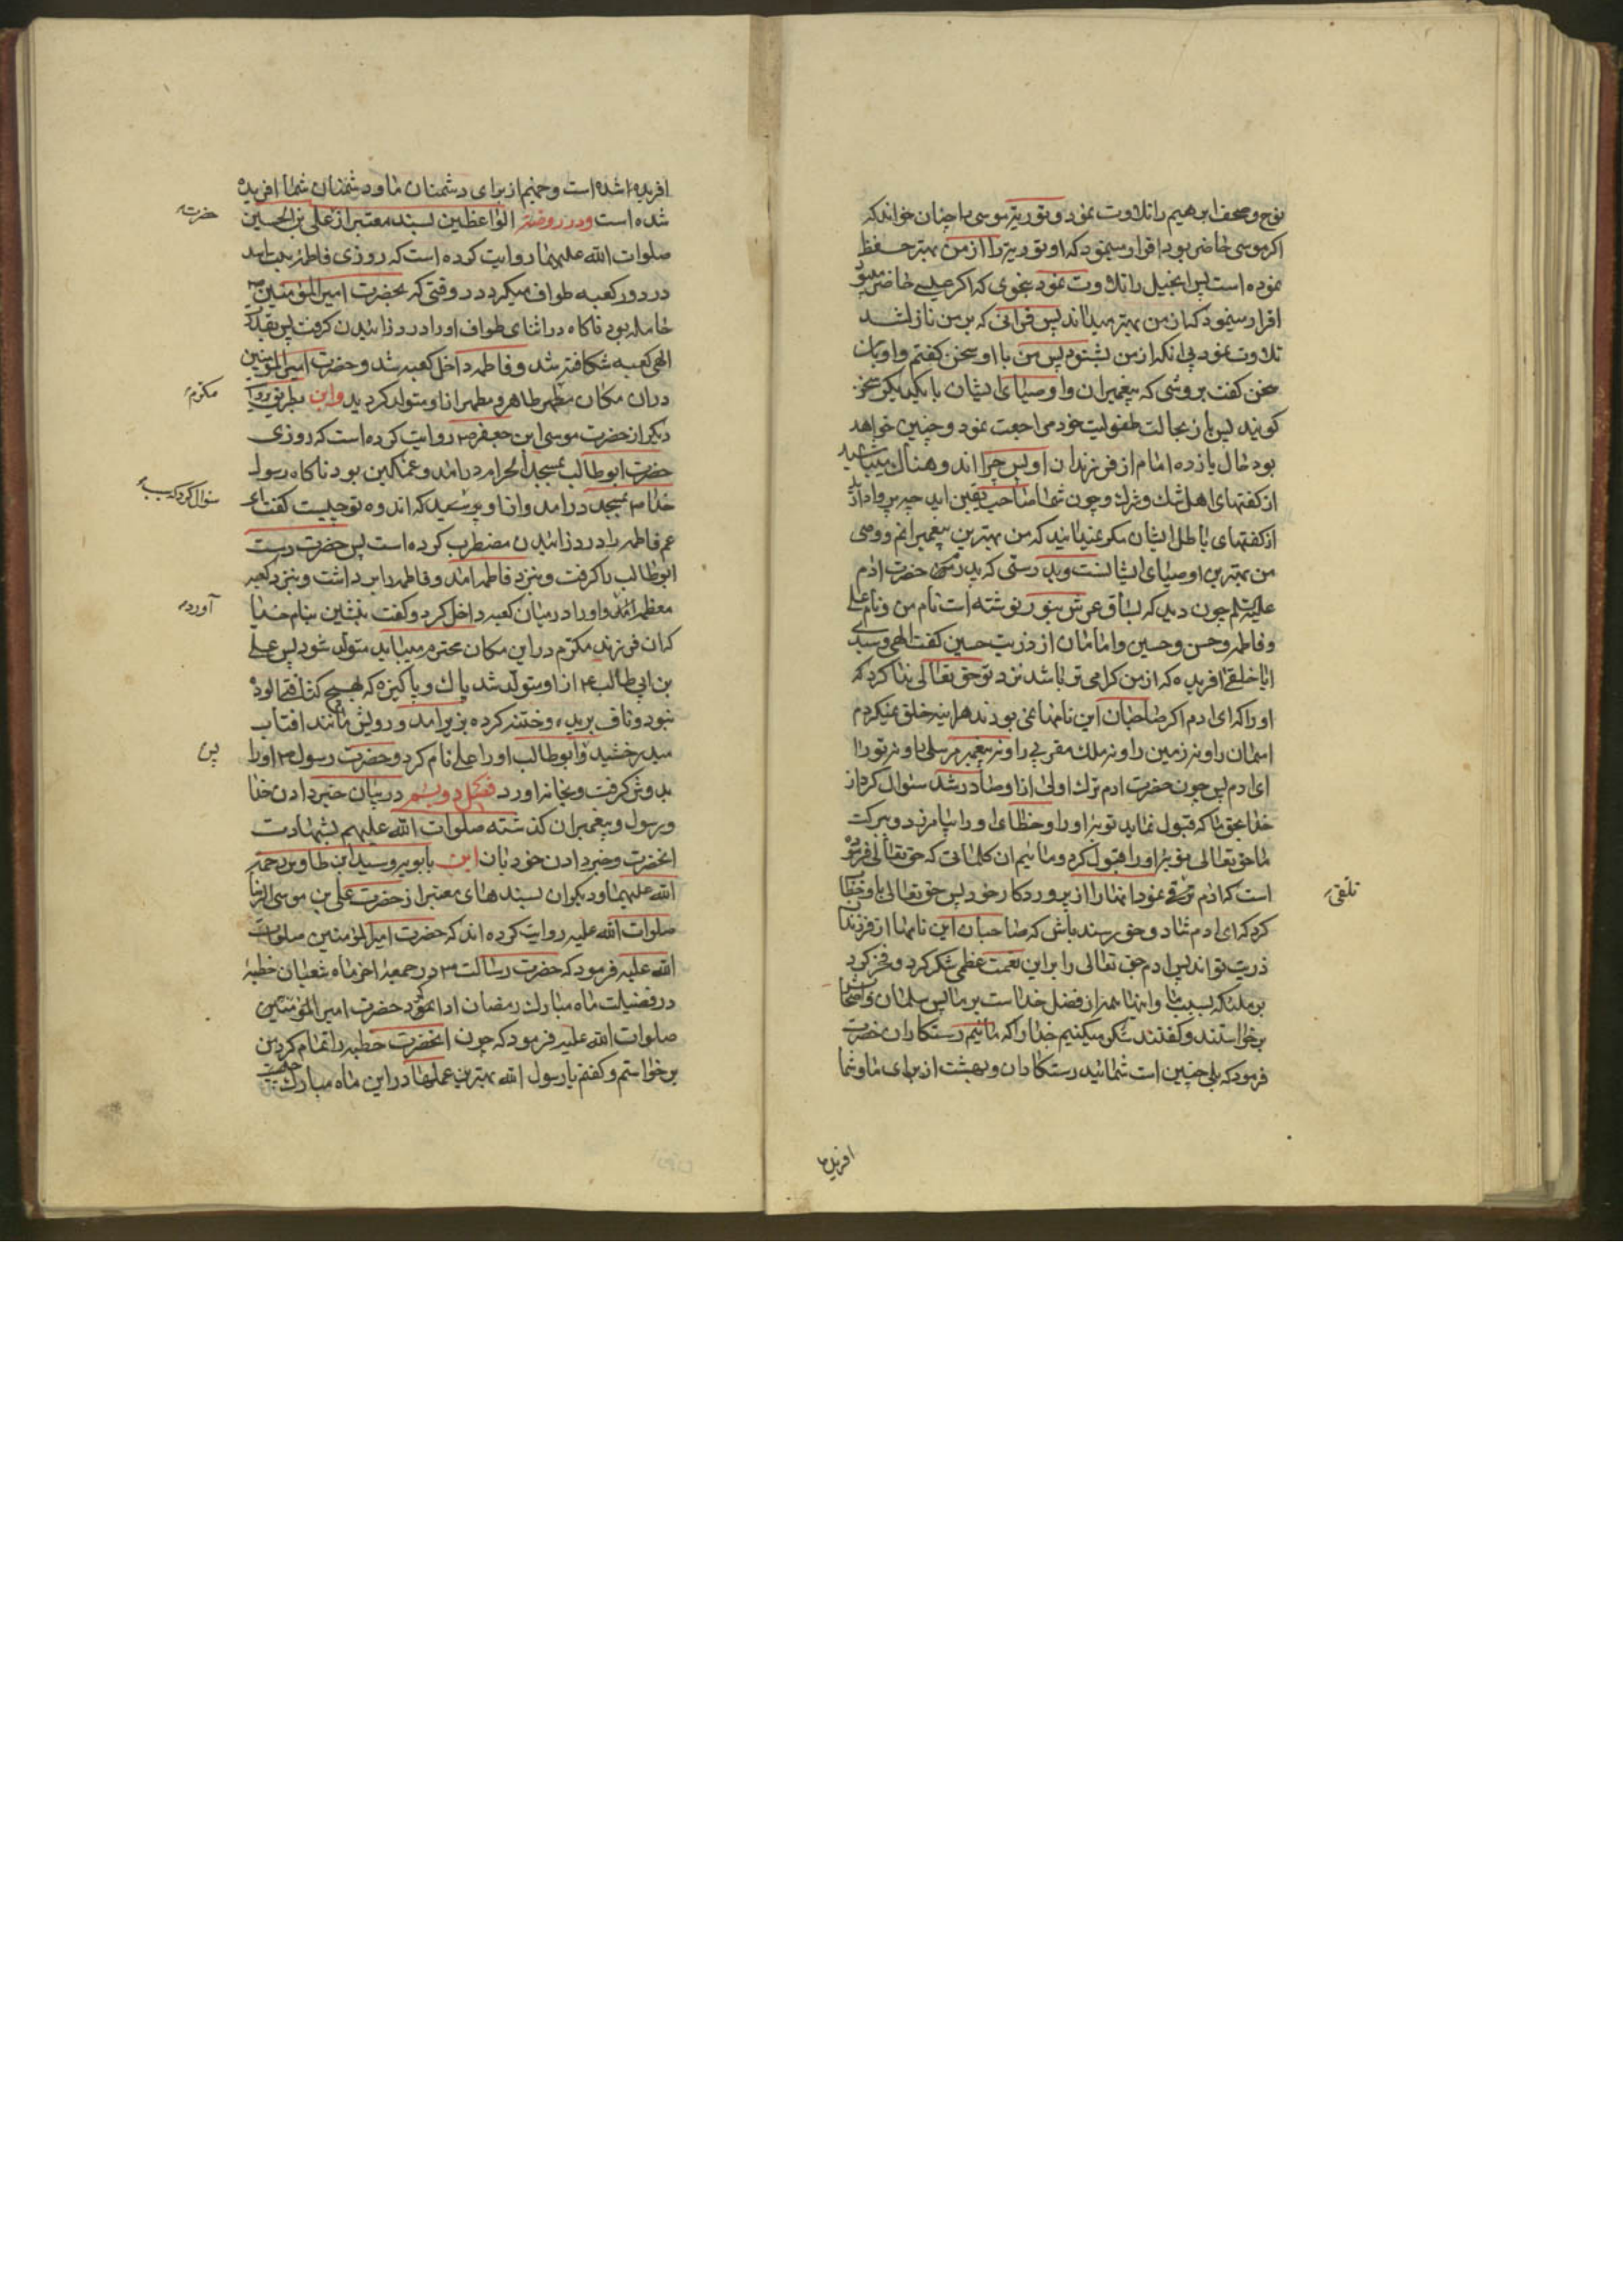 نوح و صحف ابرهیم را تلاوت نمود و توریة موسی را چنان خواند که
اکر موسی حاضر بود اقرار مینمود که او توریة را از من بهتر حفظ
نموده است پس انجیل را تلاوت نمود بنحوی که اکر عیسی حاضر میبود
اقرار مینمود که از من بهتر میداند پس قرآنی که بر من نازل شد
تلاوت نمود بی آنکه از من بشنود پس من با او سخن کفتم و او با من
سخن کفت بروشی که پیغمبران و اوصیای ایشان با یکدیکر سخن
کویند پس باز بحالت طفولیت خود مراجعت نمود و چنین خواهد
بود حال یازده امام از فرزندان او پس چرا اندوهناک میباشید
از کفتهای اهل شک و شرک و چون شما صاحب یقین اید چه پروا دارید
از کفتهای باطل ایشان مکر نمیدانید که من بهترین پیغمبرانم و وصی
من بهترین اوصیای ایشانست و بدرستی که پدرم حضرت ادم
علیه السلم چون دید که بساق عرش بنور نوشته است نام من و نام علی
و فاطمه و حسن و حسین و امامان از ذریت حسین کفت الهی و سیدی
ایا خلقی افریده که از من کرامی تر باشد نزد تو حق تعالی ندا کرد که
او را که ای ادم اکر صاحبان این نامها نمی بودند هر اینه خلق نمیکردم
اسمان را و نه زمین را و نه ملک مقربی را و نه پیغمبر مرسلی را و نه تو را
ای ادم پس چون حضرت ادم ترک اولی از او صادر شد سئوال کرد از
خدا بحق ما که قبول نماید توبه او را و خطای او را بیامرزد و ببرکت
ما حق تعالی توبه او را قبول کرد و ما ئیم ان کلماتی که حق تعالی فرموده
است که ادم تلقی نمود انها را از پروردکار خود پس حق تعالی باو خطاب
کرد که ای ادم شاد و خورسند باش که صاحبان این نامها از فرزندان
ذریت تواند پس ادم حق تعالی را بر این نعمت عظمی شکر کرد و فخر کرد
بر ملئکه بسبب ما و اینها همه از فضل خداست بر ما پس سلمان و اصحاب
برخواستند و کفتند شکر میکنیم خدا را که مائیم رستکاران حضرت
فرمود که بلی چنین است شمائید رستکاران و بهشت از برای ما و شما
تلقی
افریده
افریده شده است و جهنم از برای دشمنان ما و دشمنان شما افریده
شده است و در روضة الواعظین بسند معتبر از علی بن الحسین
صلوات الله علیهما روایت کرده است که روزی فاطمه بنت اسد
در دور کعبه طواف میکرد در وقتی که بحضرت امیرالمؤمنین
حامله بود ناکاه در اثنای طواف او را درد زائیدن کرفت پس بقدرت
الهی کعبه شکافته شد و فاطمه داخل کعبه شد و حضرت امیرالمؤمنین
در ان مکان مطهر طاهر و مطهر از او متولد کردید و این بطریق
دیکر از حضرت موسی ابن جعفر روایت کرده است که روزی
حضرت ابوطالب بمسجد الحرام درامد و غمکین بود ناکاه رسول
خدا بمسجد درامد و از او پرسید که اندوه تو چیست کفت ای
عم فاطمه را درد زائیدن مضطرب کرده است پس حضرت دست
ابوطالب را کرفت و بنزد فاطمه امد و فاطمه را برداشت و بنزد کعبه
معظمه آمد و او را در میان کعبه داخل کرد و کفت بنشین بنام خدا
که ان فرزند مکرم در این مکان محترم میباید متولد شود پس علی
بن ابی طالب از او متولد شد پاک و پاکیزه که بهیچ کثافتی الوده
نبود و ناف بریده و ختنه کرده بزیر امد و رویش مانند افتاب
میدرخشید و ابوطالب او را علی نام کرد و حضرت رسول او را
بدوش کرفت و بخانه اورد فصل دویم در بیان خبر دادن خدا
و رسول و پیغمبران کذشته صلوات الله علیهم بشهادت
انحضرت و خبر دادن خود بان ابن بابویه و سید ابن طاوس رحمة
الله علیهما و دیکران بسندهای معتبر از حضرت علی بن موسی الرضا
صلوات الله علیه روایت کرده اند که حضرت امیرالمؤمنین صلوات
الله علیه فرمود که حضرت رسالت در جمعه اخر ماه شعبان خطبه
در فضیلت ماه مبارک رمضان ادا نمود حضرت امیرالمؤمنین
صلوات الله علیه فرمود که چون انحضرت خطبه را تمام کرد من
برخواستم و کفتم یا رسول الله بهترین عملها در این ماه مبارک چیست
حضرت
مکرم
سئوال کرد که سبب
آورد
پس